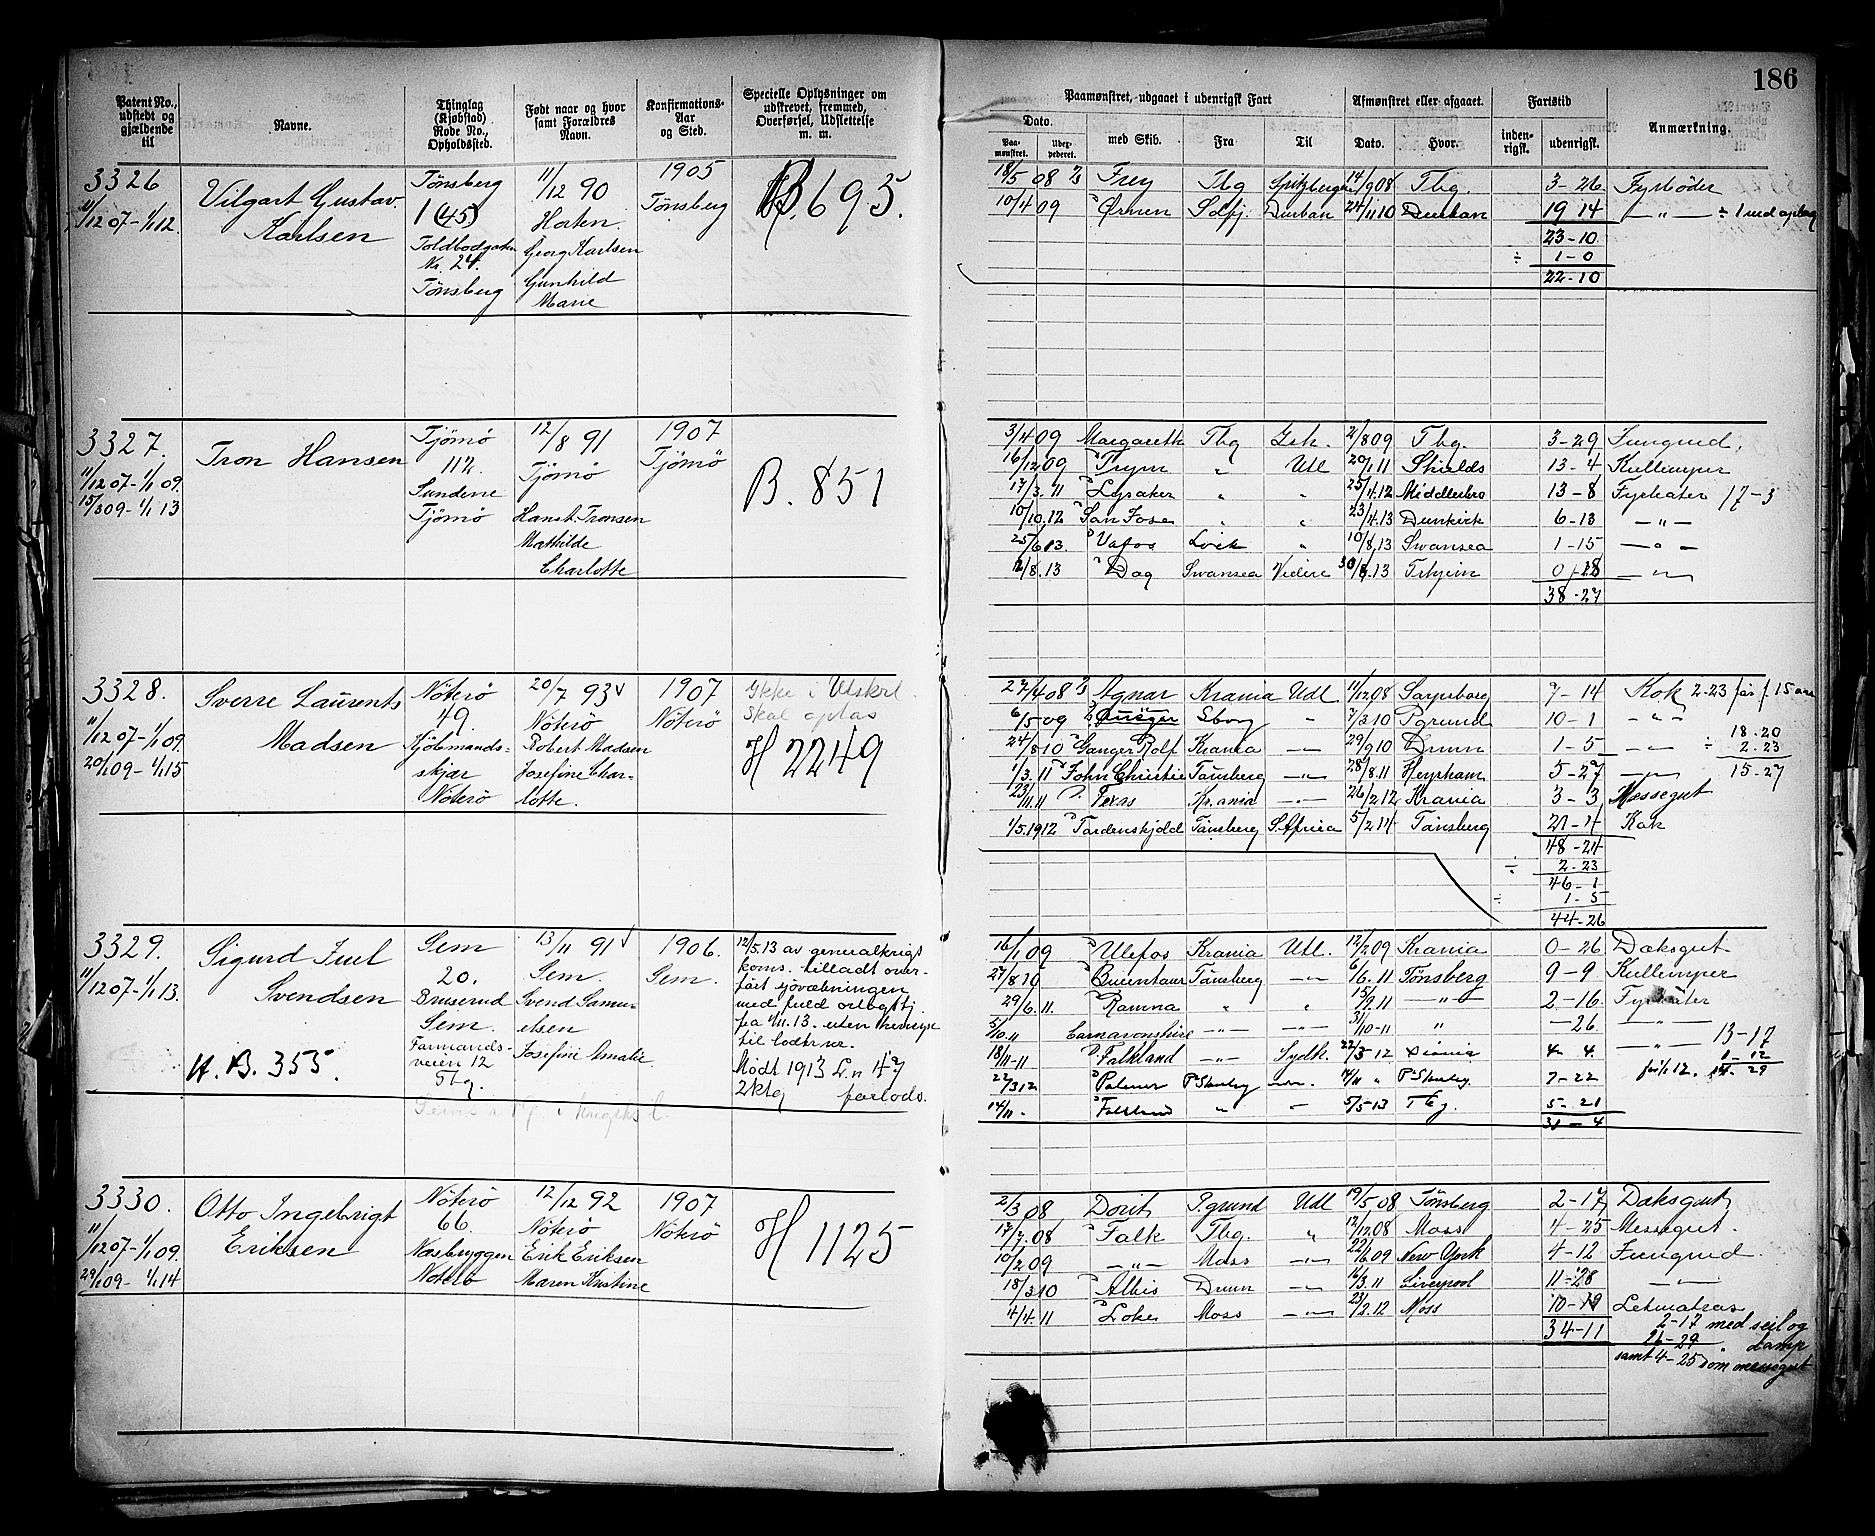 186
Patent No., udstedt og gjældende til
Navne.
Thinglag (Kjøbstad) Rode No., Opholdssted.
Født naar og hvor samt Forældres Navn.
Konfirmations-Aar og Sted.
Specielle Oplysninger om udskrevet, fremmed, Overførsel, Udslettelse m. m.
Paamønstret, udgaaet i udenrigsk Fart
Dato.
Paamønstret.
med Skib.
Fra
Til
Afmønstret eller afgaaet.
Dato.
Hvor.
Fartstid
indenrigsk.
udenrigsk.
Anmærkning.
3326
11/12 07 - 1/1 12.
Vilgart Gustav
Karlsen
Tønsberg
1 (45)
Toldbodgaten
Nr. 24.
Tønsberg
11/12 90
Horten.
Georg Karlsen
Gunhild
Marie
1905
Tønsberg
B. 695.
18/5 08 Frey Tbg Spitzbergen 14/9 08 Tbg. 3-26 Fyrbøder
10/4 09 Ørnen Sdfj. Durban 24/11 10 Durban 19 14 —„— ÷ 1 md oplag
23-10
÷ 1-0
22-10
3327.
11/12 07 - 1/1 09.
15/3 09 - 1/1 13
Tron Hansen
Tjömö
112.
Sundene
Tjömö
12/8 91
Tjömö
Hans T. Tronsen
Mathilde
Charlotte
1907
Tjömö
B. 851
3/4 09 Margareth Tbg Grh. 2/8 09 Tbg. 3-29 Jungmd.
16/12 09 Trym „ Udl 20/1 11 Shields 13-4 Kullemper
17/3 11 Lysaker „ „ 25/4 12 Middlesbro 13-8 Fyrbøter 17-3
10/10 12 San Jose „ „ 23/4 13 Dunkirk 6-13 —„—
25/6 13. Vafos Lvik „ 10/8 13 Swansea 1-15 —„—
12/8.13 Dag Swansea Videre 30/8 13 Trhjem 0-18 —„—
38-27
3328.
11/12 07 - 1/1 09.
20/1 09 - 1/1 15
Sverre Laurents
Madsen
Nöterö
49.
Kjöbmandsskjær
Nöterö
20/7 93
Nöterö
Robert Madsen
Josefine Charlotte.
1907
Nöterö
Ikke i Utskrl.
Skal optas
H 2249
27/4 08 Agnar Krania Udl 11/12 08 Sarpsborg 7-14 Kok 2-23 før f. 15 aar
6/5 09 Sborg „ 7/3 10 Pgrund 10-1 —„—
24/8 10 Ganger Rolf Krania —„— 29/9 10 Drmn 1-5 —„—
18.20
÷ 2-23
15-27
1/3.11 John Christie Tønsberg —„— 28/8.11 Heysham 5-27 —„—
23/11.11 Texas Kr.ania —„— 26/2 12 Krania 3-3 Messegut
1/5.1912 Tordenskjold Tønsberg S. Africa 5/2 14 Tønsberg 21-4 Kok
48-24
÷ 2-23
46-1
÷ 1-5
44-26
3329.
11/12 07 - 1/1 13.
Sigurd Juel
Svendsen
H. B. 355.
Sem
20.
Bruserud
Sem.
Farmandsveien 12
Tbg.
13/11 91
Sem.
Svend Samuelsen
Josefine Amalie
1906.
Sem.
12/5.13 av generalkrigskoms. tilladt overført sjøvæbningen
med fuld orlogstj
fra 1/11.13. uten henvise
til lodtr. nr.
Mødt 1913 L.n 47
2ktg forlods.
16/1 09 Ulefos Krania Udl. 12/2 09 Krania 0-26 Dæksgut
27/8 10 Tønsberg —„— 6/6.11 Tønsberg 9-9 Kullemper
29/6.11. Ramna „ „ 15/9.11 —„— 2-16. Fyrbøter
5/10.11 Carnarvonshire —„— —„— 31/10-11 „ —26. —„—
18/11-11 Falkland —„— Sydh. 22/3-12 4-4. —„—
13-17
1-12
22/3 12 Palmer 14/11 „ 7-22
14/11 - Falkland „ — 5/5 13 Tbg. 5-21
31-4
3330.
11/12 07 - 1/1 09.
29/1 09 - 1/1 14
Otto Ingebrigt
Eriksen
Nöterö
66.
Næsbryggen
Nöterö
12/12 92
Nöterö
Erik Eriksen
Maren Kristine
1907
Nöterö
H 1125
2/3 08 Dorit P.grund Udl 19/5 08 Tønsberg 2-17 Dæksgut
17/7 08 Falk Tbg. „ 12/12 08 Moss 4-25 Messegut.
10/2 09 —„— Moss —„— 22/6 09 New York 4-12 Jungmd.
18/3 10 Albis Drmn —„— 16/3.11 Liverpool 11-28 —„—
4/4.11 Loke Moss —„— 23/2.12 Moss 10-19 Letmatros
34-11
2-17 med seil og
26-29 „ damp
samt 4-25 som messegut